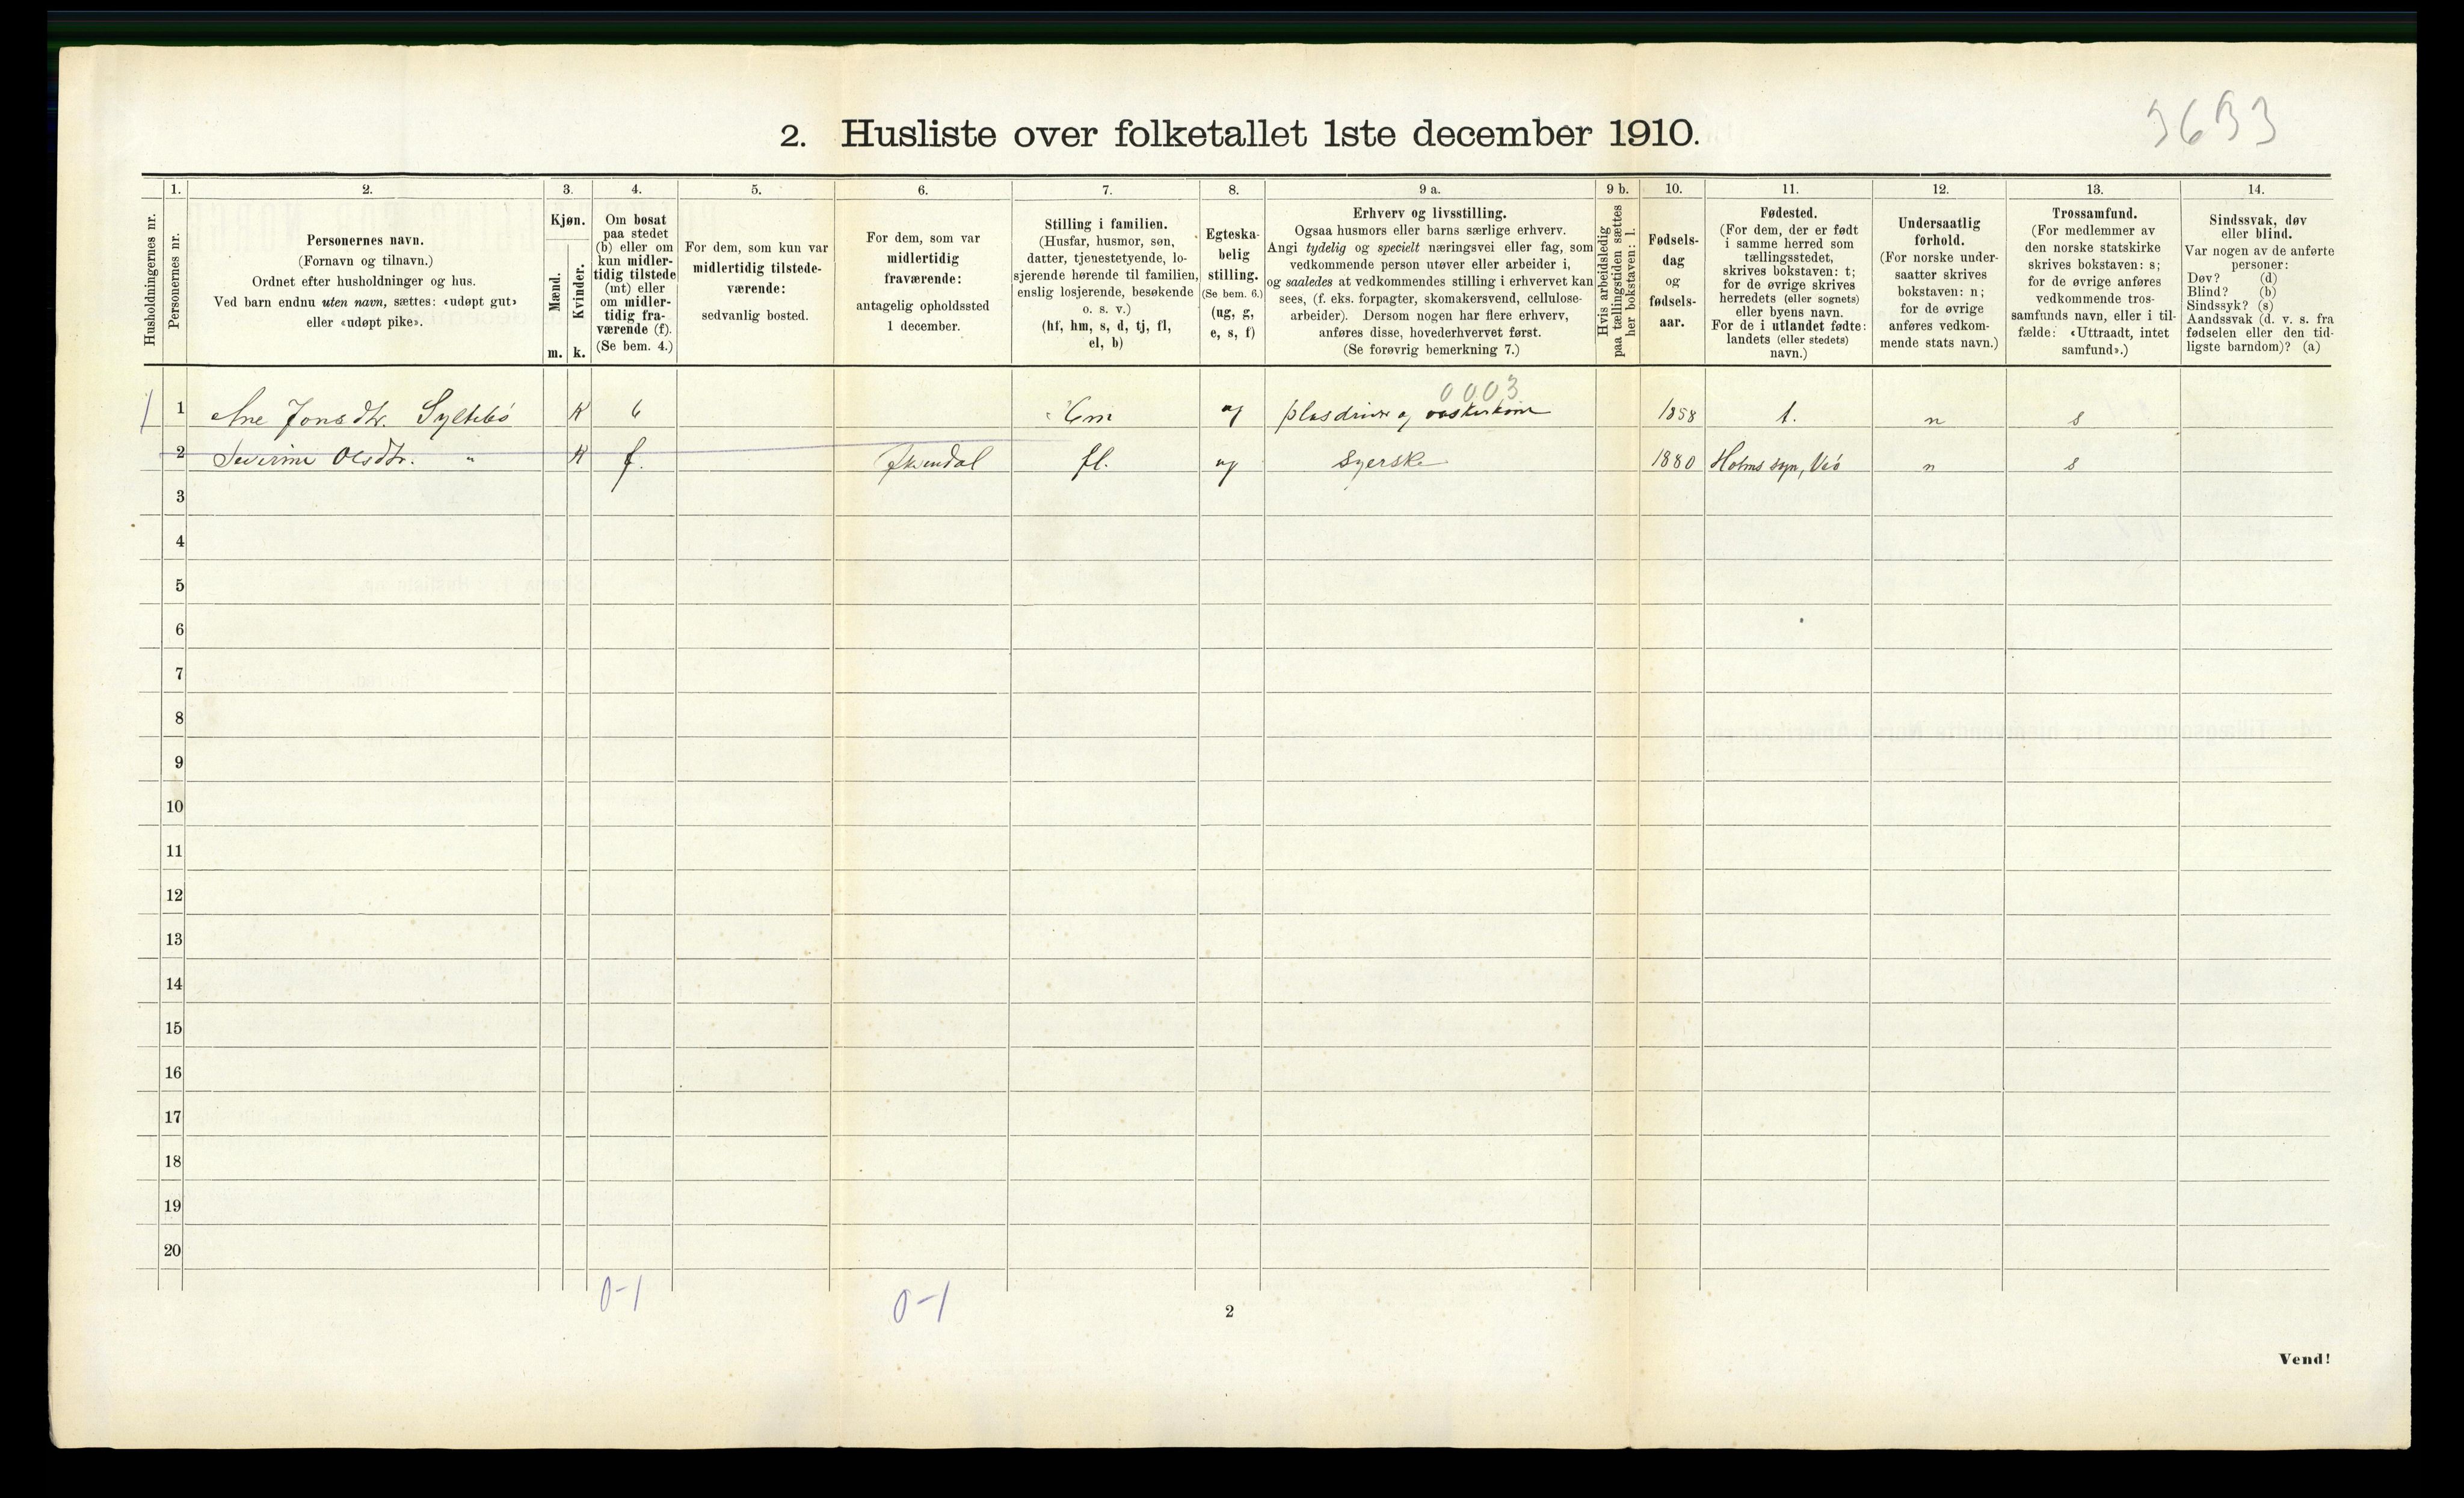 3633
2. Husliste over folketallet 1ste december 1910.
Husholdningernes nr.
1.
Personernes nr.
2.
Personernes navn.
(Fornavn og tilnavn.)
Ordnet efter husholdninger og hus.
Ved barn endnu uten navn, sættes: «udøpt gut»
eller «udøpt pike».
3.
Kjøn.
Mænd.
Kvinder.
m. k.
4.
Om bosat
paa stedet
(b) eller om
kun midler-
tidig tilstede
(mt) eller
om midler-
tidig fra-
værende (f).
(Se bem. 4.)
5.
For dem, som kun var
midlertidig tilstede-
værende:
sedvanlig bosted.
6.
For dem, som var
midlertidig
fraværende:
antagelig opholdssted
1 december.
7.
Stilling i familien.
(Husfar, husmor, søn,
datter, tjenestetyende, lo-
sjerende hørende til familien,
enslig losjerende, besøkende
o. s. v.)
(hf, hm, s, d, tj, fl,
el, b)
8.
Egteska-
belig
stilling.
(Se bem. 6.)
(ug, g,
e, s, f)
9 a.
Erhverv og livsstilling.
Ogsaa husmors eller barns særlige erhverv.
Angi tydelig og specielt næringsvei eller fag, som
vedkommende person utøver eller arbeider i,
og saaledes at vedkommendes stilling i erhvervet kan
sees, (f. eks. forpagter, skomakersvend, cellulose-
arbeider). Dersom nogen har flere erhverv,
anføres disse, hovederhvervet først.
(Se forøvrig bemerkning 7.)
9 b.
Hvis arbeidsledig
paa tællingstiden sættes
her bokstaven: l.
10.
Fødsels-
dag
og
fødsels-
aar.
11.
Fødested.
(For dem, der er født
i samme herred som
tællingsstedet,
skrives bokstaven: t;
for de øvrige skrives
herredets (eller sognets)
eller byens navn.
For de i utlandet fødte:
landets (eller stedets)
navn.)
12.
Undersaatlig
forhold.
(For norske under-
saatter skrives
bokstaven: n;
for de øvrige
anføres vedkom-
mende stats navn.)
13.
Trossamfund.
(For medlemmer av
den norske statskirke
skrives bokstaven: s;
for de øvrige anføres
vedkommende tros-
samfunds navn, eller i til-
fælde: «Uttraadt, intet
samfund».)
14.
Sindssvak, døv
eller blind.
Var nogen av de anførte
personer:
Døv? (d)
Blind? (b)
Sindssyk? (s)
Aandssvak (d. v. s. fra
fødselen eller den tid-
ligste barndom)? (a)
0003
1 1 Ane Jonsdtr. Syltebø K b hm ug plasdriver og vaskerkone 1858 t. n s
2 Severine Olsdtr. " K f. fl. ug Syerske 1880 Holms sgn, Veø n s
3
4
5
6
7
8
9
10
11
12
13
14
15
16
17
18
19
20
0-1 0-1
2
Vend!